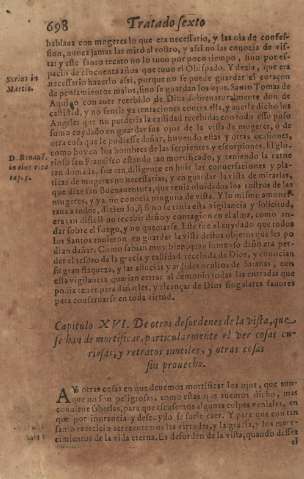 698 Tratado sexto
hablaua con mugeres lo que era necessario, y las oia de confes-
sion, nunca jamas las mirò al rostro, y assi no las conocia de vis-
ta: y este santo recato no lo tuuo por poco tiempo, sino por es-
pacio de cincuenta años que tuuo el Obispado. Y dezia, que era
Surius in
Martin.
necessario hazerlo assi, porque no se puede guardar el coraçon
de pensamientos malos, sino se guardan los ojos. Santo Tomas de
Aquino con auer recebido de Dios don de
castidad, y no sentir tentaciones contra ella, y auerle dicho los
Angeles que no perderia la castidad recebida: con todo esso puso
sumo cuydado en guardar los ojos de la vista de mugeres, y de
otra cosa que le pudiesse dañar, huyendo ellas y otras ocasiones,
como huyen los hombres de las serpientes y escorpiones. El glo-
D. Bonau.
in eius vita
cap. 5.
rioso san Francisco estando tan mortificado, y teniendo la carne
tan domada, fue tan diligente en huir las conuersaciones y pla-
ticas de mugeres no necessarias, y en guardar la vista de mirarlas,
que dize san Buenauentura, que tenia oluidados los rostros de las
mugeres, y ya no conocia ninguna de vista. Y lo mismo
a todos, diziendo, que sino se tenia esta vigilancia y solicitud,
era tan dificil no recebir daño y contagion en el alma, como an-
dar sobre el fuego, y no quemarse. Este fue el cuydado que todos
los Santos tuuieron en guardar la vista destos objetos que les po-
dian dañar. Como sabian muy bien quan inmenso daño era per-
der el tesoro de la gracia y castidad recebida de Dios, y conocian
su gran flaqueza, y las astucias y ardides ocultos de Satanas, con
esta vigilancia querian cerrar al demonio todas las entradas que
podia tener para dañarles, y alcançar de Dios singulares fauores
para conseruarse en toda virtud.
Capitulo XVI. De otros desordenes de la vista, que
se han de mortificar, particularmente el ver cosas cu-
riosas, y retratos inutiles, y otras cosas
sin prouecho.
AY otras cosas en que deuemos mortificar los ojos, que aun-
que no son peligrosas, como estas que auemos dicho, mas
conuiene saberlas, para que escusemos algunas culpas veniales, en
que por inorancia y descuydo se suele caer. Y para que con tan
santo exercicio acrecentemos las virtudes, y la gracia, y los mere-
cimientos de la vida eterna. Es desorden de la vista, quando dessea
el